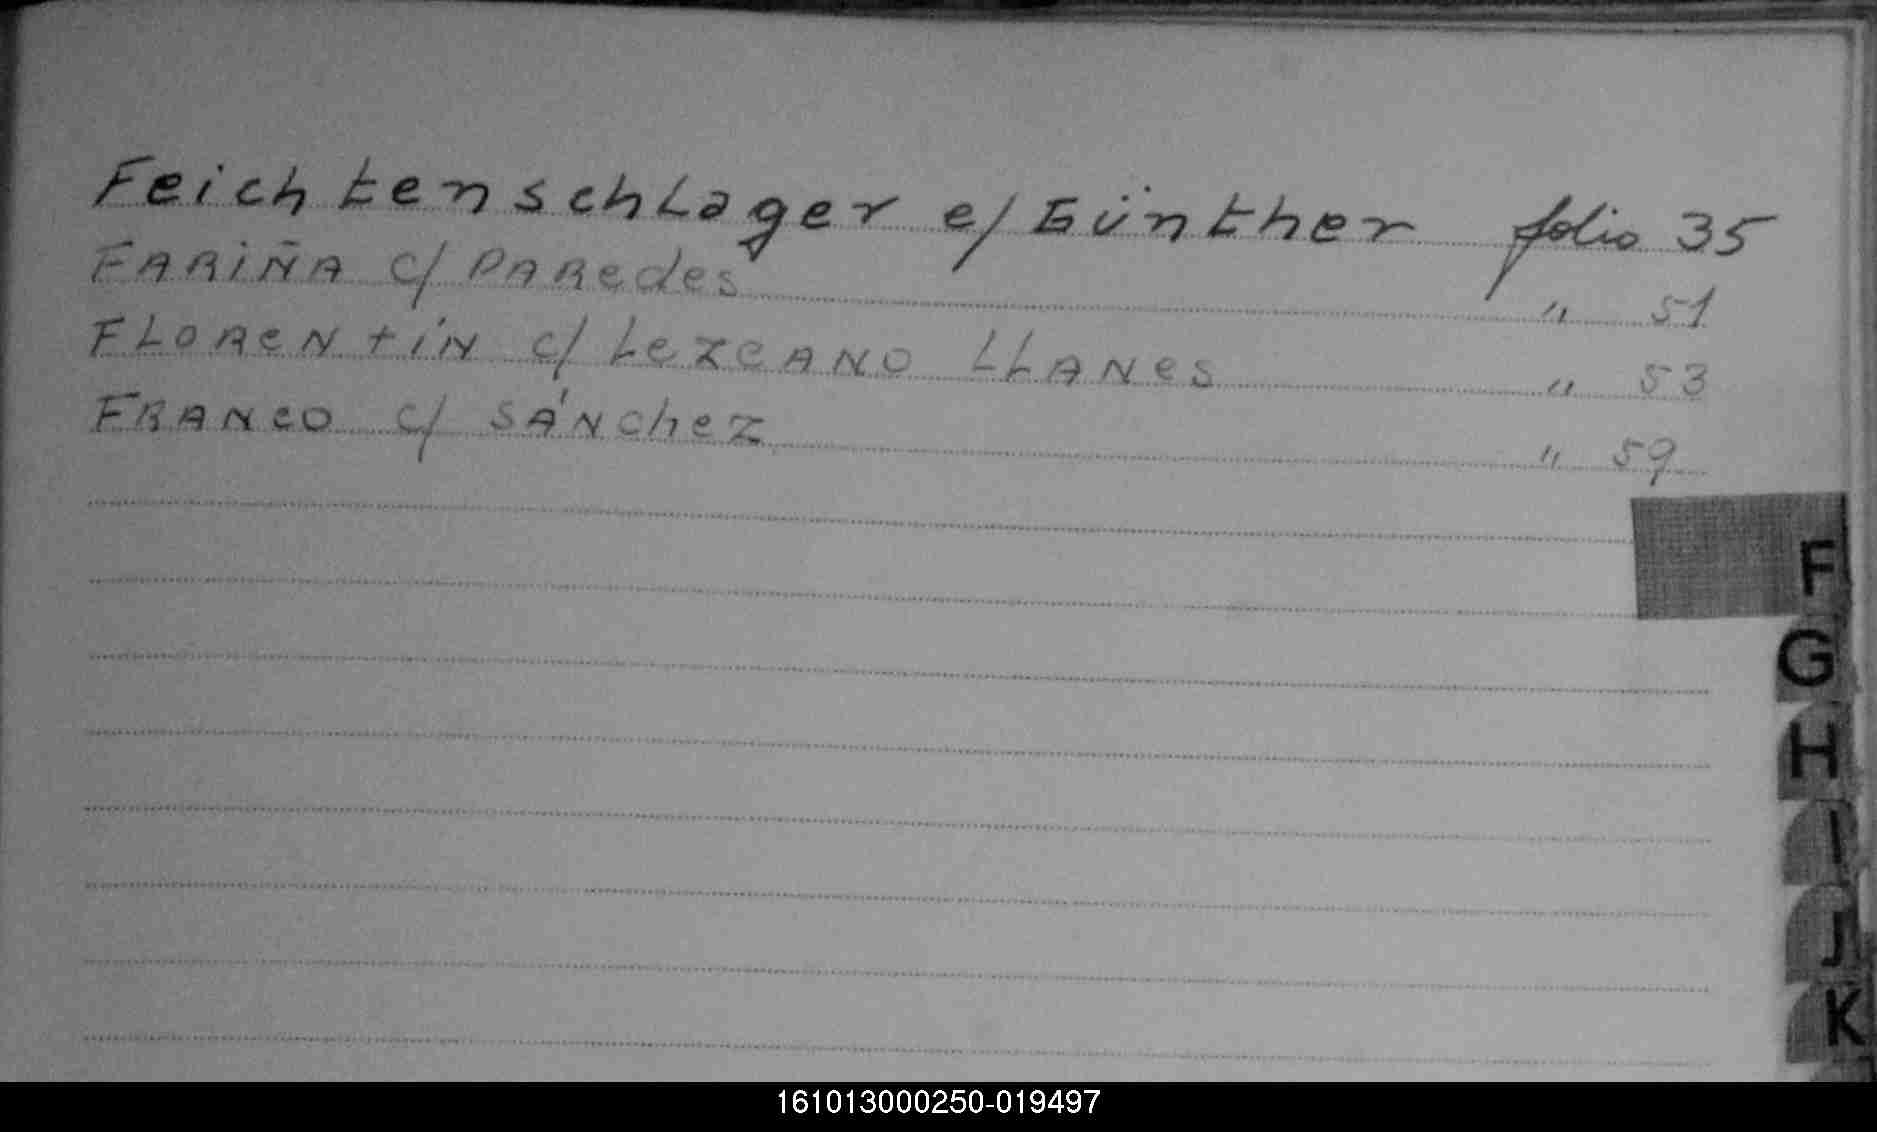 Feichtenschlager c/ Günther folio 35
FARIÑA c/ PARedes " 51
FLORENtíN c/ LezcANO LLANes " 53
FRANCO c/ SÁNchez " 59
F
G
H
I
J
K
161013000250-019497